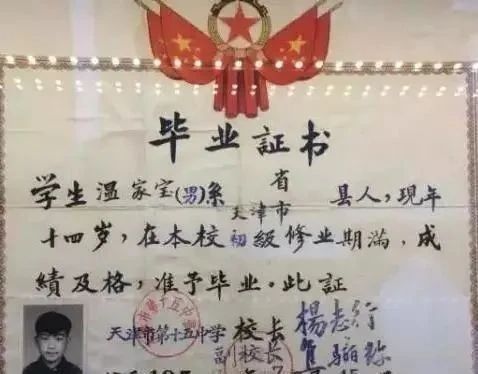 毕业証书
学生温家宝(男)系 省 天津市 县人,现年
十四岁,在本校初級修业期滿,成
績及格,准予毕业。此証
天津市第十五中学 校长 楊志行
副校长